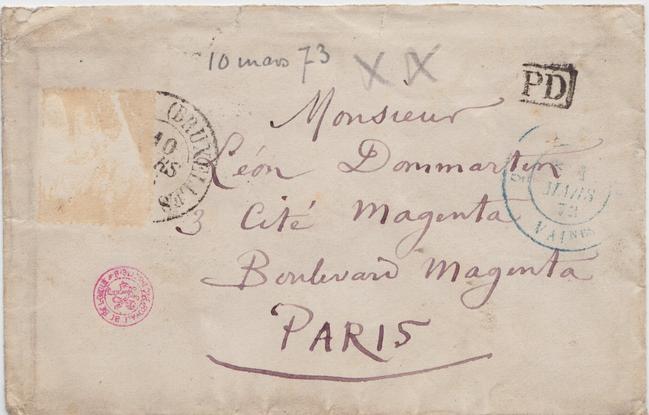 10 mars 73
XX
PD
Monsieur
(BRUXELLES)
10
Léon Dommartin
MARS
73
3 Cité Magenta
Boulevard Magenta
PARIS